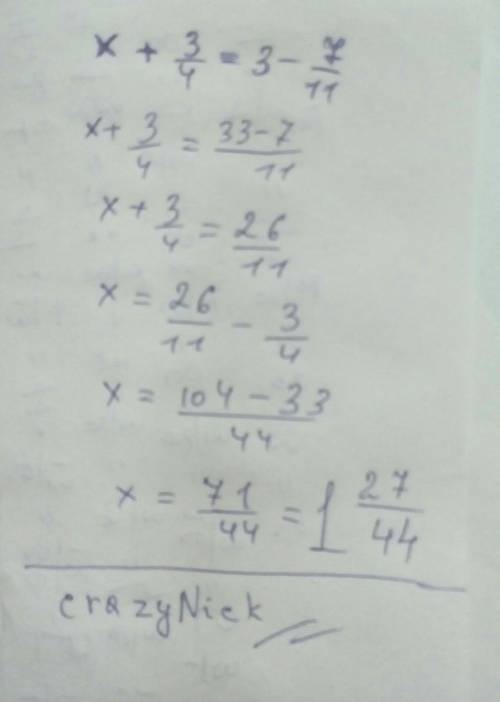 x + 3/4 = 3 - 7/11
x + 3/4 = 33-7/11
x + 3/4 = 26/11
x = 26/11 - 3/4
x = 104 - 33/44
x = 71/44 = 1 27/44
crazyNick